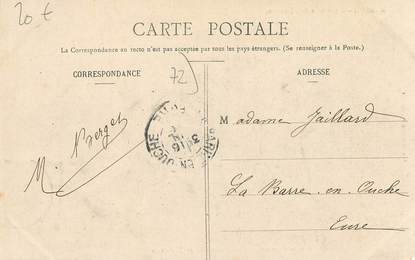 20 €
CARTE POSTALE
La Correspondance au recto n'est pas acceptée par tous les pays étrangers. (Se renseigner à la Poste.)
CORRESPONDANCE
72
ADRESSE
M. Berget
BARRE EN OUCHE
16
Madame Jaillard
La Barre-en-Ouche
Eure